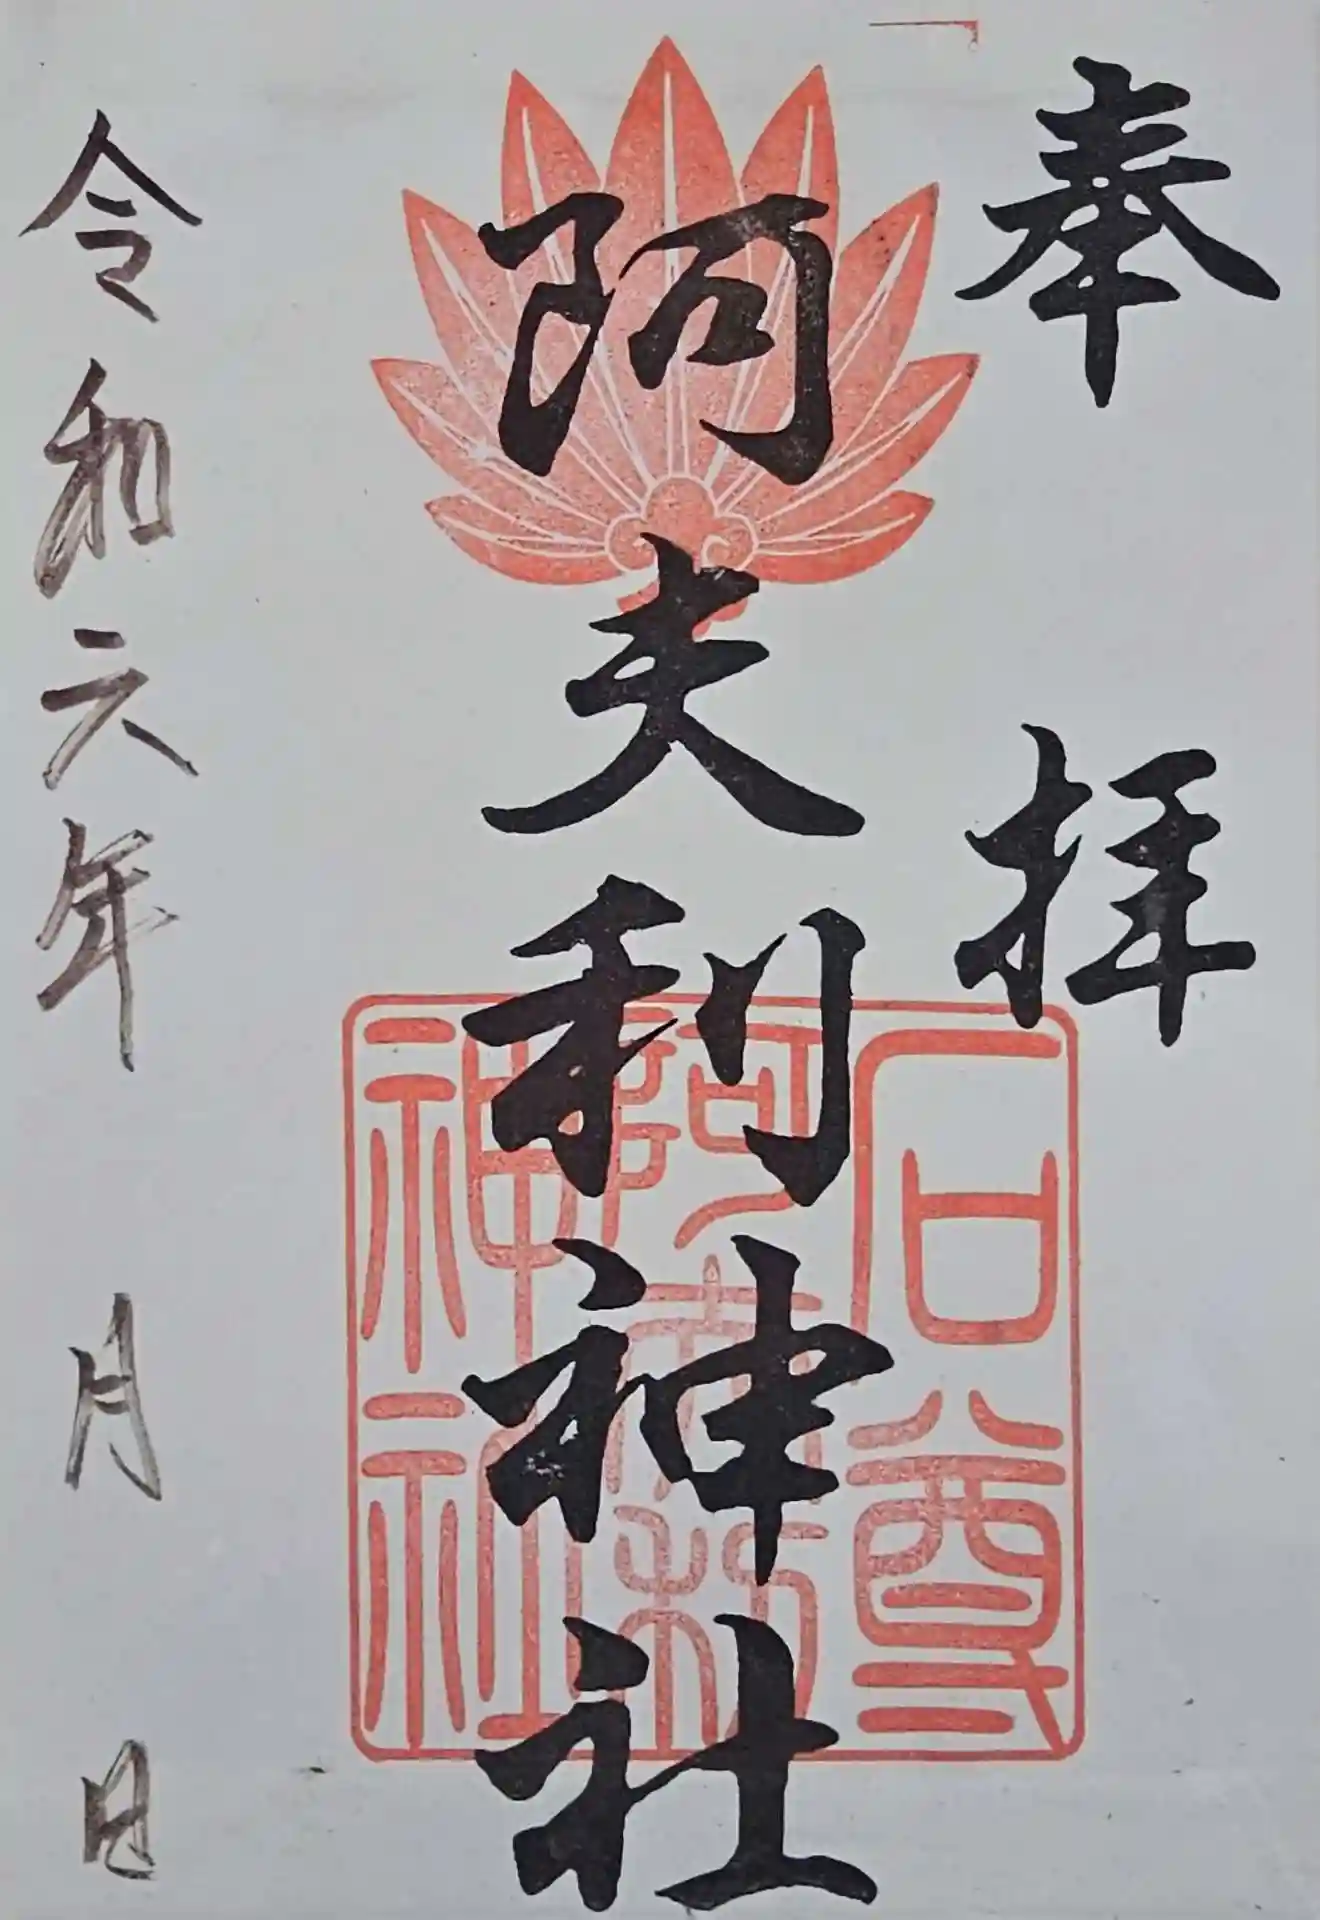 奉拝
阿夫利神社
石尊
阿夫利
神社
令和六年 月 日